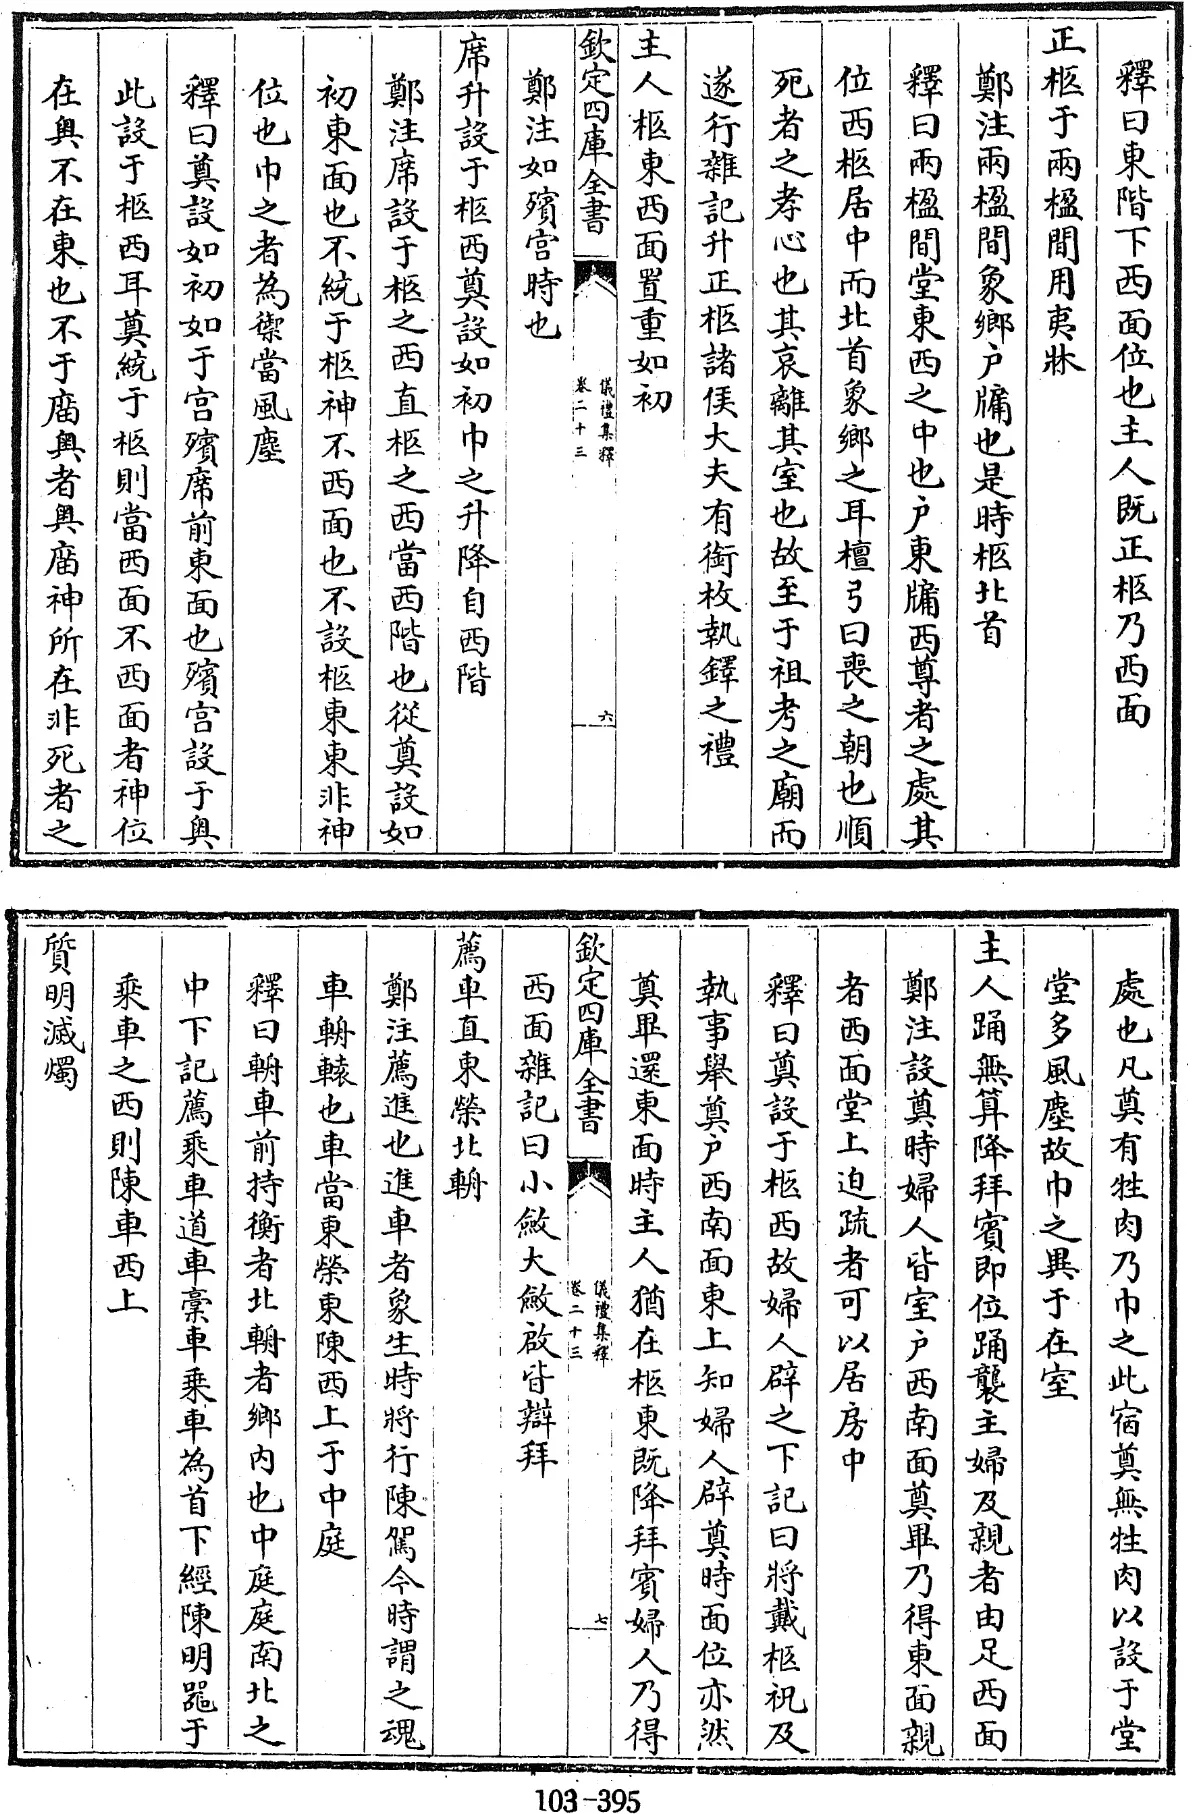 釋曰東階下西面位也主人既正柩乃西面
正柩于兩楹間用夷牀
鄭注兩楹間象鄉户牖也是時柩北首
釋曰兩楹間堂東西之中也户東牖西尊者之處其
位西柩居中而北首象鄉之耳檀弓曰喪之朝也順
死者之孝心也其哀離其室也故至于祖考之廟而
遂行雜記升正柩諸侯大夫有銜枚執鐸之禮
主人柩東西面置重如初
欽定四庫全書
儀禮集釋
卷二十三
六
鄭注如殯宫時也
席升設于柩西奠設如初巾之升降自西階
鄭注席設于柩之西直柩之西當西階也從奠設如
初東面也不統于柩神不西面也不設柩東東非神
位也巾之者為禦當風塵
釋曰奠設如初如于宫殯席前東面也殯宫設于奥
此設于柩西耳奠統于柩則當西面不西面者神位
在奥不在東也不于牖奥者奥牖神所在非死者之
處也凡奠有牲肉乃巾之此宿奠無牲肉以設于堂
堂多風塵故巾之異于在室
主人踊無算降拜賓即位踊襲主婦及親者由足西面
鄭注設奠時婦人皆室户西南面奠畢乃得東面親
者西面堂上迫疏者可以居房中
釋曰奠設于柩西故婦人辟之下記曰將載柩祝及
執事舉奠户西南面東上知婦人辟奠時面位亦然
奠畢還東面時主人猶在柩東既降拜賓婦人乃得
欽定四庫全書
儀禮集釋
卷二十三
七
西面雜記曰小斂大斂啟皆辯拜
薦車直東榮北輈
鄭注薦進也進車者象生時將行陳駕今時謂之魂
車輈轅也車當東榮東陳西上于中庭
釋曰輈車前持衡者北輈者鄉内也中庭庭南北之
中下記薦乘車道車槀車乘車為首下經陳明器于
乘車之西則陳車西上
質明滅燭
103-395